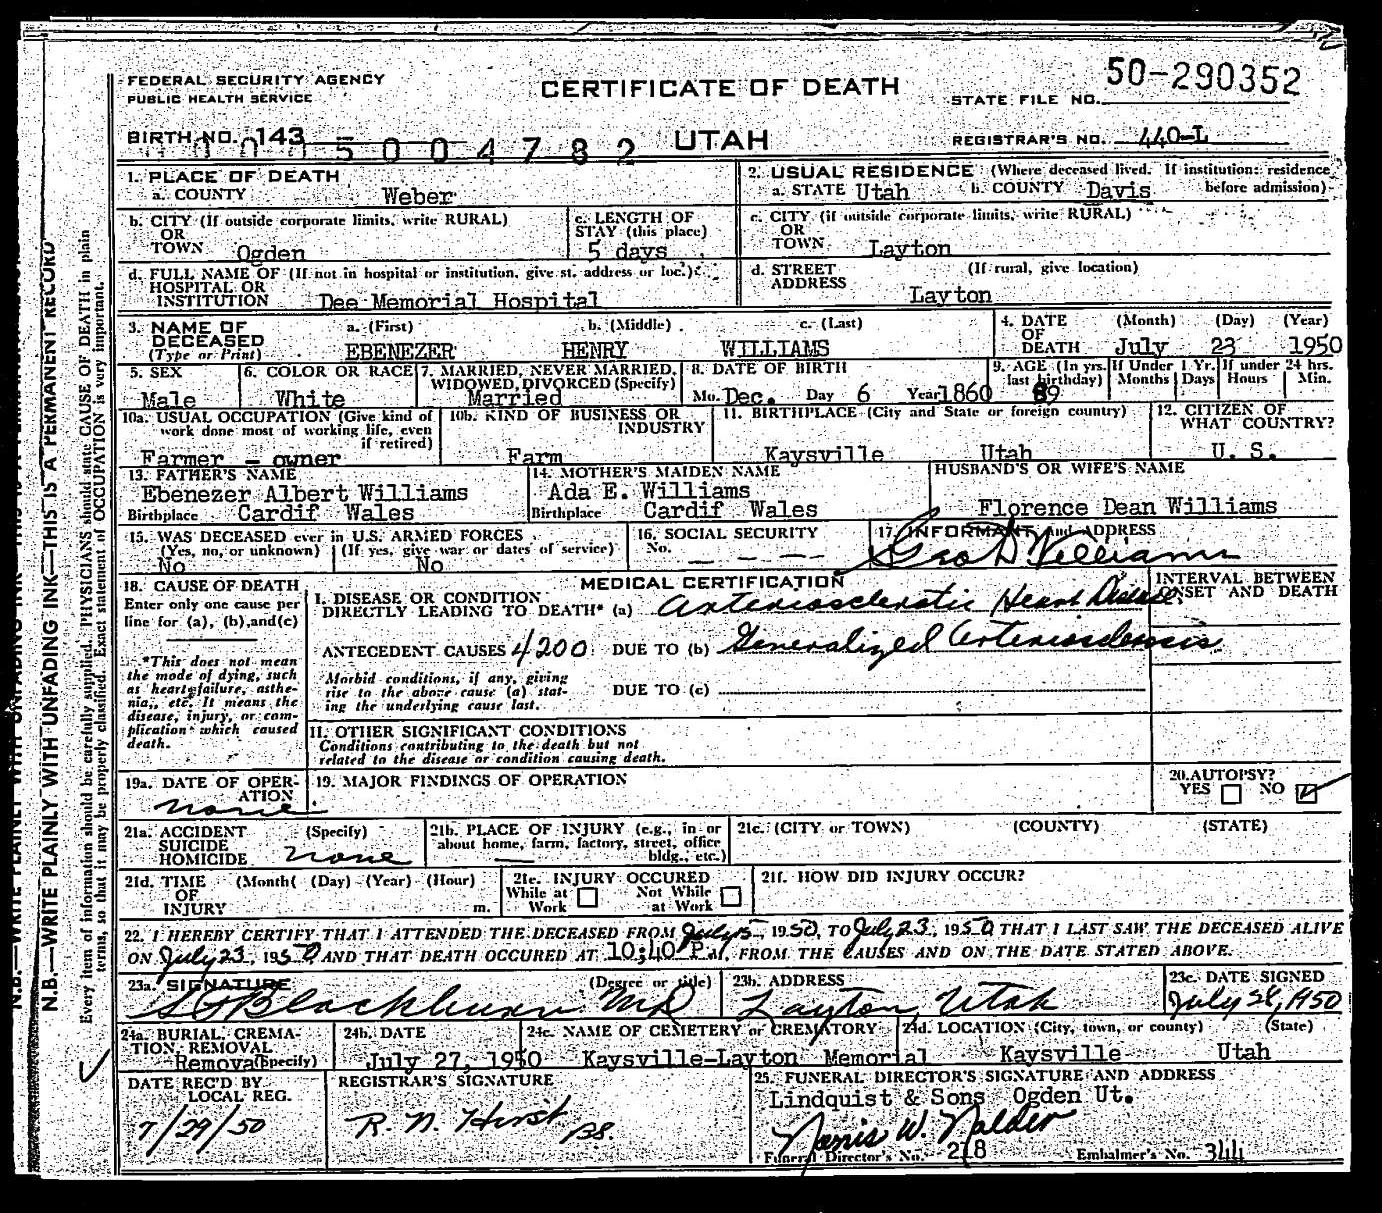 FEDERAL SECURITY AGENCY
PUBLIC HEALTH SERVICE
CERTIFICATE OF DEATH
STATE FILE NO. 50-290352
BIRTH NO. 143
0 0 0 5 0 0 4 7 8 2
UTAH
REGISTRAR'S NO. 440-L
1. PLACE OF DEATH
a. COUNTY Weber
2. USUAL RESIDENCE (Where deceased lived. If institution: residence before admission)
a. STATE Utah b. COUNTY Davis
b. CITY (If outside corporate limits, write RURAL)
OR
TOWN Ogden
c. LENGTH OF
STAY (this place)
5 days
c. CITY (if outside corporate limits, write RURAL)
OR
TOWN Layton
d. FULL NAME OF (If not in hospital or institution, give st. address or loc.)
HOSPITAL OR
INSTITUTION Dee Memorial Hospital
d. STREET (If rural, give location)
ADDRESS
Layton
3. NAME OF
DECEASED
(Type or Print)
a. (First) b. (Middle) c. (Last)
EBENEZER HENRY WILLIAMS
4. DATE (Month) (Day) (Year)
OF
DEATH July 23 1950
5. SEX
Male
6. COLOR OR RACE
White
7. MARRIED, NEVER MARRIED,
WIDOWED, DIVORCED (Specify)
Married
8. DATE OF BIRTH
Mo. Dec. Day 6 Year 1860
9. AGE (In yrs.
last birthday)
89
If Under 1 Yr.
Months Days
If under 24 hrs.
Hours Min.
10a. USUAL OCCUPATION (Give kind of
work done most of working life, even
if retired)
Farmer - owner
10b. KIND OF BUSINESS OR
INDUSTRY
Farm
11. BIRTHPLACE (City and State or foreign country)
Kaysville Utah
12. CITIZEN OF
WHAT COUNTRY?
U. S.
13. FATHER'S NAME
Ebenezer Albert Williams
Birthplace Cardif Wales
14. MOTHER'S MAIDEN NAME
Ada E. Williams
Birthplace Cardif Wales
HUSBAND'S OR WIFE'S NAME
Florence Dean Williams
15. WAS DECEASED ever in U.S. ARMED FORCES
(Yes, no, or unknown) (If yes, give war or dates of service)
No No
16. SOCIAL SECURITY
No. — — —
17. INFORMANT and ADDRESS
Geo D Williams
18. CAUSE OF DEATH
Enter only one cause per
line for (a), (b), and (c)
*This does not mean
the mode of dying, such
as heart failure, asthe-
nia, etc. It means the
disease, injury, or com-
plication which caused
death.
MEDICAL CERTIFICATION
I. DISEASE OR CONDITION
DIRECTLY LEADING TO DEATH* (a) Arteriosclerotic Heart Disease
INTERVAL BETWEEN
ONSET AND DEATH
ANTECEDENT CAUSES 4200 DUE TO (b) Generalized Arteriosclerosis
Morbid conditions, if any, giving
rise to the above cause (a) stat-
ing the underlying cause last.
DUE TO (c)
II. OTHER SIGNIFICANT CONDITIONS
Conditions contributing to the death but not
related to the disease or condition causing death.
19a. DATE OF OPER-
ATION
None
19. MAJOR FINDINGS OF OPERATION
20. AUTOPSY?
YES NO
21a. ACCIDENT (Specify)
SUICIDE
HOMICIDE None
21b. PLACE OF INJURY (e.g., in or
about home, farm, factory, street, office
bldg., etc.)
21c. (CITY or TOWN) (COUNTY) (STATE)
21d. TIME (Month) (Day) (Year) (Hour)
OF
INJURY m.
21e. INJURY OCCURED
While at Work Not While at Work
21f. HOW DID INJURY OCCUR?
22. I HEREBY CERTIFY THAT I ATTENDED THE DECEASED FROM July 5, 1950, TO July 23, 1950 THAT I LAST SAW THE DECEASED ALIVE
ON July 23, 1950, AND THAT DEATH OCCURED AT 10:40 P.M. FROM THE CAUSES AND ON THE DATE STATED ABOVE.
23a. SIGNATURE (Degree or title)
Blackburn MD
23b. ADDRESS
Layton, Utah
23c. DATE SIGNED
July 28, 1950
24a. BURIAL, CREMA-
TION, REMOVAL
Removal (Specify)
24b. DATE
July 27, 1950
24c. NAME OF CEMETERY or CREMATORY
Kaysville-Layton Memorial
24d. LOCATION (City, town, or county) (State)
Kaysville Utah
DATE REC'D BY
LOCAL REG.
7/29/50
REGISTRAR'S SIGNATURE
R. N. Hirst
25. FUNERAL DIRECTOR'S SIGNATURE AND ADDRESS
Lindquist & Sons Ogden Ut.
W. Nalder
Funeral Director's No. 218 Embalmer's No. 344
N.B.—WRITE PLAINLY WITH UNFADING INK—THIS IS A PERMANENT RECORD
Every item of information should be carefully supplied. PHYSICIANS should state CAUSE OF DEATH in plain
terms, so that it may be properly classified. Exact statement of OCCUPATION is very important.